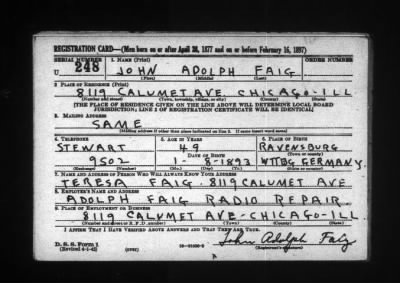 REGISTRATION CARD—(Men born on or after April 28, 1877 and on or before February 16, 1897)
SERIAL NUMBER 1. NAME (Print) ORDER NUMBER
U 248 JOHN ADOLPH FAIG
(First) (Middle) (Last)
2. PLACE OF RESIDENCE (Print)
8119 CALUMET AVE CHICAGO-ILL
(Number and street) (Town, township, village, or city) (County) (State)
[THE PLACE OF RESIDENCE GIVEN ON THE LINE ABOVE WILL DETERMINE LOCAL BOARD
JURISDICTION; LINE 2 OF REGISTRATION CERTIFICATE WILL BE IDENTICAL]
3. MAILING ADDRESS
SAME
[Mailing address if other than place indicated on line 2. If same insert word same]
4. TELEPHONE 5. AGE IN YEARS 6. PLACE OF BIRTH
STEWART 49 RAVENSBURG
DATE OF BIRTH (Town or county)
9502 1-8-1893 WTTBG GERMANY
(Exchange) (Number) (Mo.) (Day) (Yr.) (State or country)
7. NAME AND ADDRESS OF PERSON WHO WILL ALWAYS KNOW YOUR ADDRESS
TERESA FAIG. 8119 CALUMET AVE
8. EMPLOYER'S NAME AND ADDRESS
ADOLPH FAIG RADIO REPAIR
9. PLACE OF EMPLOYMENT OR BUSINESS
8119 CALUMET AVE-CHICAGO-ILL
(Number and street or R. F. D. number) (Town) (County) (State)
I AFFIRM THAT I HAVE VERIFIED ABOVE ANSWERS AND THAT THEY ARE TRUE.
D. S. S. Form 1
(Revised 4-1-42) (over) John Adolph Faig
(Registrant's signature)